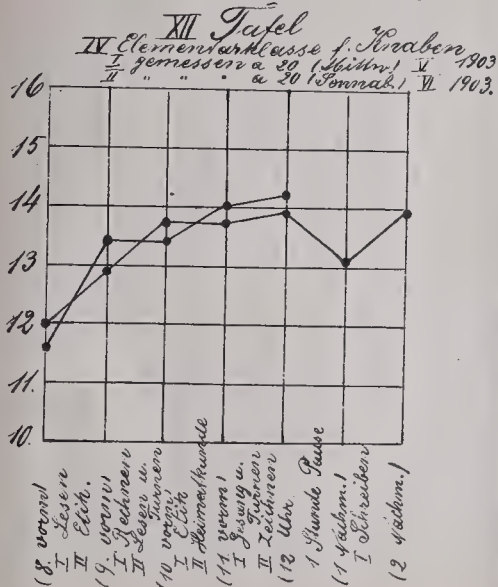 XII Tafel
IV Elementarklasse f. Knaben
I gemessen a 20 (Mittw.) V 1903
II " " " a 20 (Sonnab.) VI 1903.
16
15
14
13
12
11.
10.
(8. vorm)
I Lesen
II Etik.
(9. vorm)
I Rechnen
II Lesen u.
Turnen
(10 vorm)
I Etik
II Heimatkunde
(11. vorm)
I Gesang u.
Turnen
II Zeichnen
(12 Uhr.
1 Stunde Pause
(1 Nachm.)
I Schreiben
(2 Nachm.)